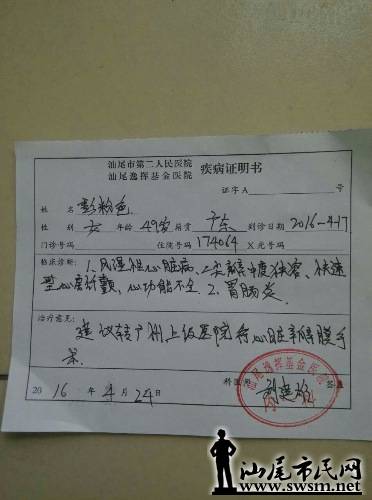 汕尾市第二人民医院
汕尾逸挥基金医院 疾病证明书
证字A 号
姓名 彭粉色
性别 女 年龄 49岁 籍贯 广东 到诊日期 2016-4.17
门诊号码 住院号码 174064 X光号码
临床诊断：1.风湿性心脏病，二尖瓣中度狭窄、快速
型心房纤颤，心功能不全 2.胃肠炎
治疗意见：
建议转广州上级医院行心脏瓣膜手
术
2016年4月24日 科医师 签章
汕尾逸挥基金医院
汕尾市民网
www.swsm.net